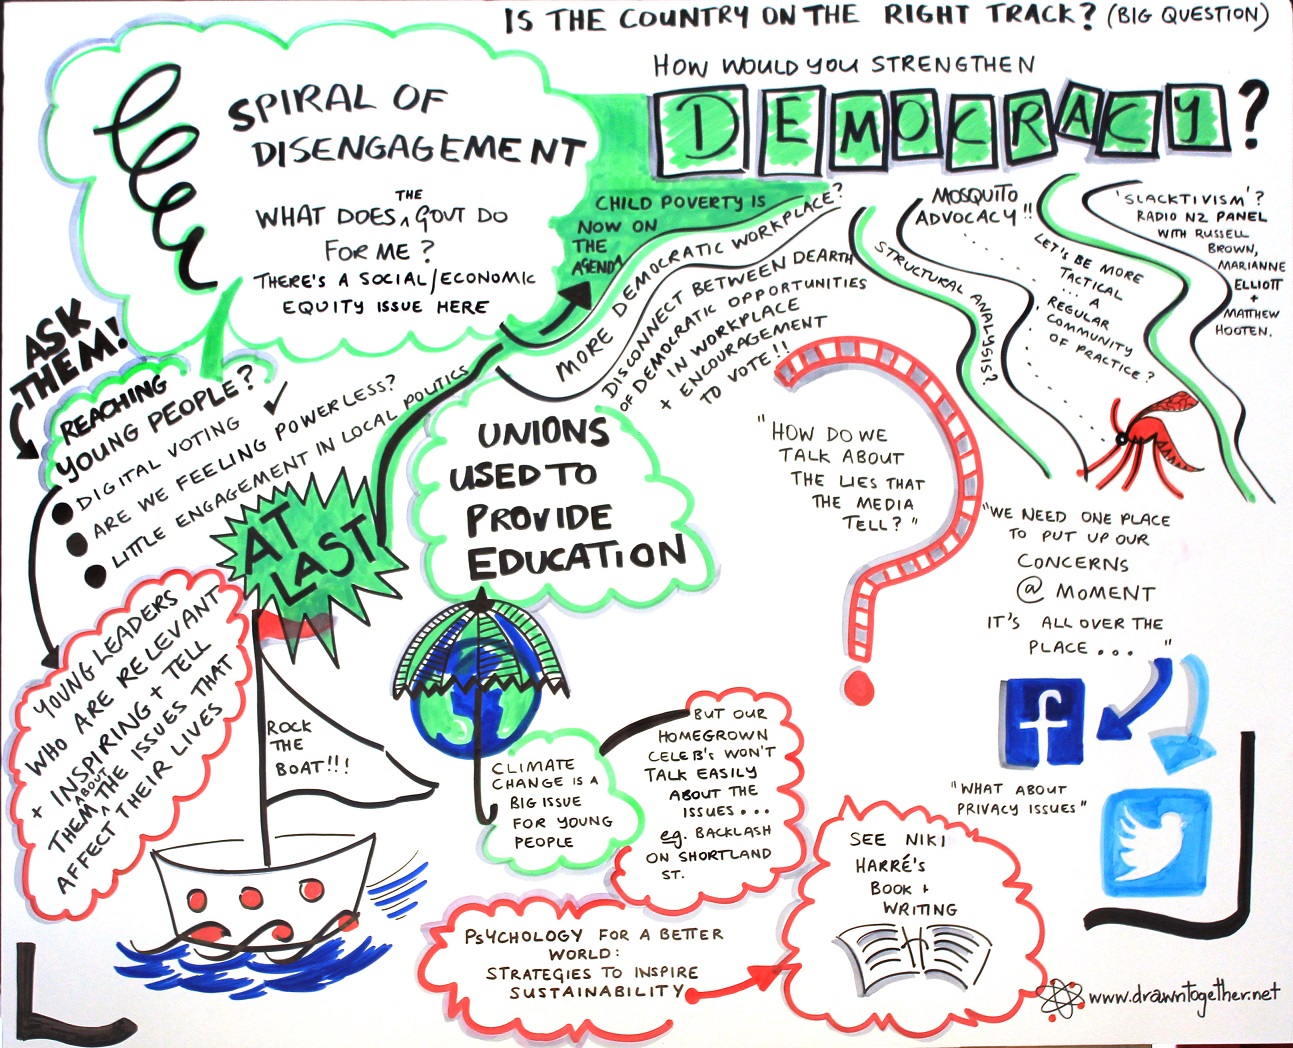 IS THE COUNTRY ON THE RIGHT TRACK? (BIG QUESTION)
HOW WOULD YOU STRENGTHEN
DEMOCRACY?
SPIRAL OF
DISENGAGEMENT
WHAT DOES THE GOVT DO
FOR ME?
THERE'S A SOCIAL/ECONOMIC
EQUITY ISSUE HERE
CHILD POVERTY IS
NOW ON
THE
AGENDA
MORE DEMOCRATIC WORKPLACE?
DISCONNECT BETWEEN DEARTH
OF DEMOCRATIC OPPORTUNITIES
IN WORKPLACE
+ ENCOURAGEMENT
TO VOTE!!
STRUCTURAL ANALYSIS?
MOSQUITO
ADVOCACY!!
LET'S BE MORE
TACTICAL
... A
REGULAR
COMMUNITY
OF PRACTICE?
'SLACKTIVISM'?
RADIO NZ PANEL
WITH RUSSELL
BROWN,
MARIANNE
ELLIOTT
+
MATTHEW
HOOTEN.
ASK
THEM!
REACHING
YOUNG PEOPLE?
DIGITAL VOTING
ARE WE FEELING POWERLESS?
LITTLE ENGAGEMENT IN LOCAL POLITICS
AT
LAST
UNIONS
USED TO
PROVIDE
EDUCATION
"HOW DO WE
TALK ABOUT
THE LIES THAT
THE MEDIA
TELL?"
"WE NEED ONE PLACE
TO PUT UP OUR
CONCERNS
@ MOMENT
IT'S ALL OVER THE
PLACE..."
f
"WHAT ABOUT
PRIVACY ISSUES"
YOUNG LEADERS
WHO ARE RELEVANT
+ INSPIRING + TELL
THEM ABOUT THE ISSUES THAT
AFFECT THEIR LIVES
ROCK
THE
BOAT!!!
CLIMATE
CHANGE IS A
BIG ISSUE
FOR YOUNG
PEOPLE
BUT OUR
HOMEGROWN
CELEB'S WON'T
TALK EASILY
ABOUT THE
ISSUES...
eg. BACKLASH
ON SHORTLAND
ST.
SEE NIKI
HARRÉ'S
BOOK +
WRITING
PSYCHOLOGY FOR A BETTER
WORLD:
STRATEGIES TO INSPIRE
SUSTAINABILITY
www.drawntogether.net